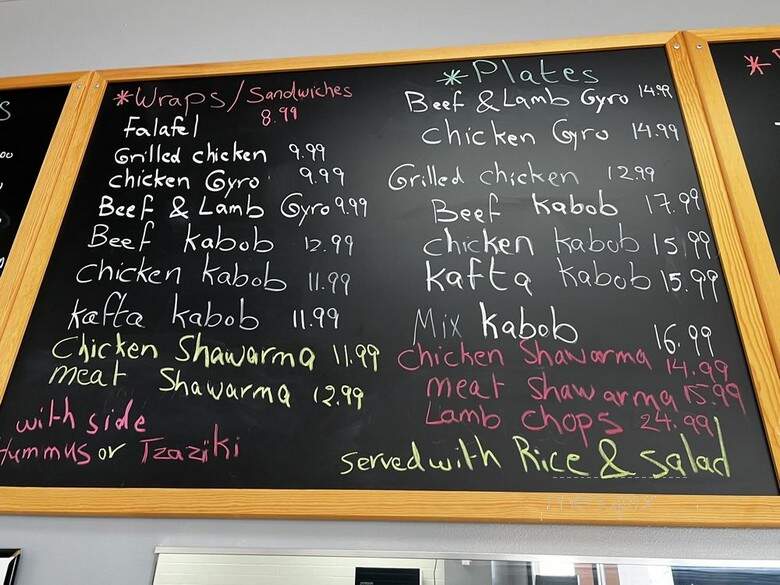 *Wraps/Sandwiches
8.99
Falafel
Grilled chicken 9.99
chicken Gyro 9.99
Beef & Lamb Gyro 9.99
Beef kabob 12.99
chicken kabob 11.99
kafta kabob 11.99
Chicken Shawarma 11.99
meat Shawarma 12.99
with side
Hummus or Tzaziki
*Plates
Beef & Lamb Gyro 14.99
Chicken Gyro 14.99
Grilled chicken 12.99
Beef kabob 17.99
chicken kabob 15.99
kafta kabob 15.99
Mix kabob 16.99
Chicken Shawarma 14.99
meat Shawarma 15.99
Lamb chops 24.99
served with Rice & salad